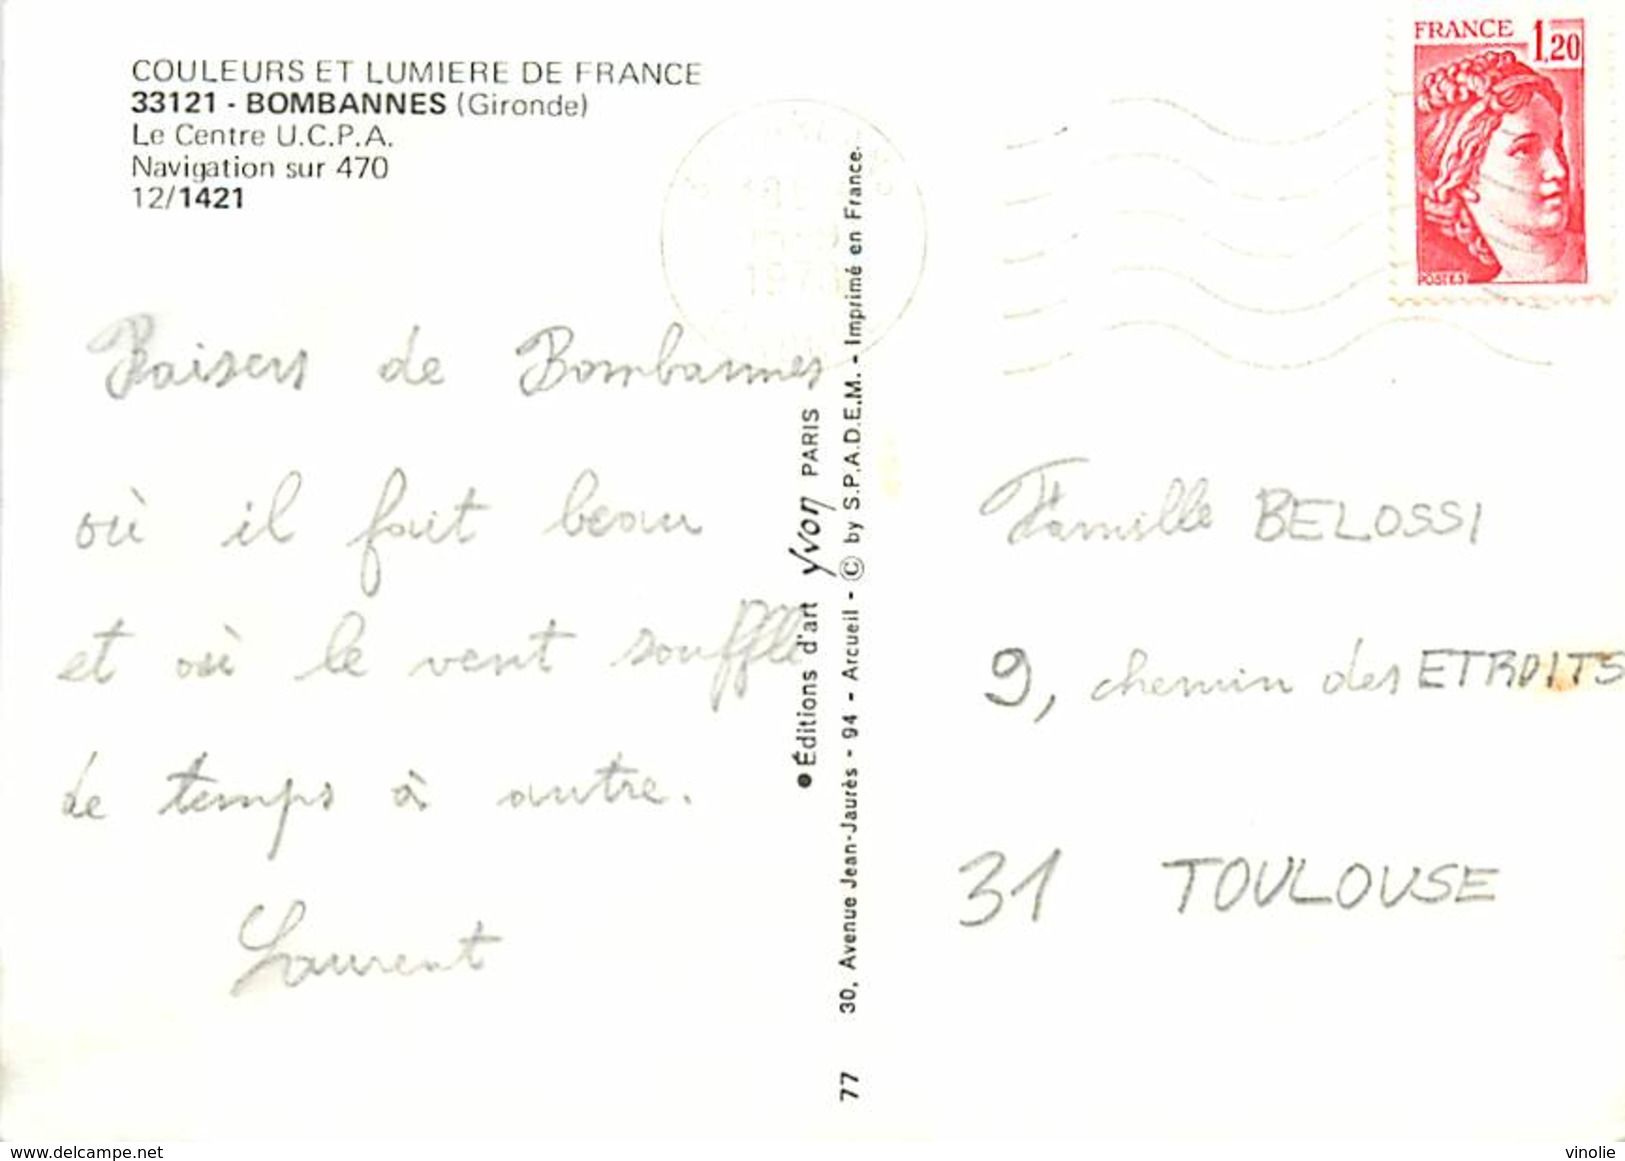 COULEURS ET LUMIERE DE FRANCE
33121 - BOMBANNES (Gironde)
Le Centre U.C.P.A.
Navigation sur 470
12/1421
FRANCE 1,20
POSTES
Baisers de Bombannes
où il fait beau
et où le vent souffle
de temps à autre.
Laurent
●Éditions d'art Yvon PARIS
77 30, Avenue Jean-Jaurès - 94 - Arcueil - © by S.P.A.D.E.M. - Imprimé en France.
Famille BELOSSI
9, chemin des ETROITS
31 TOULOUSE
www.delcampe.net
vinolie